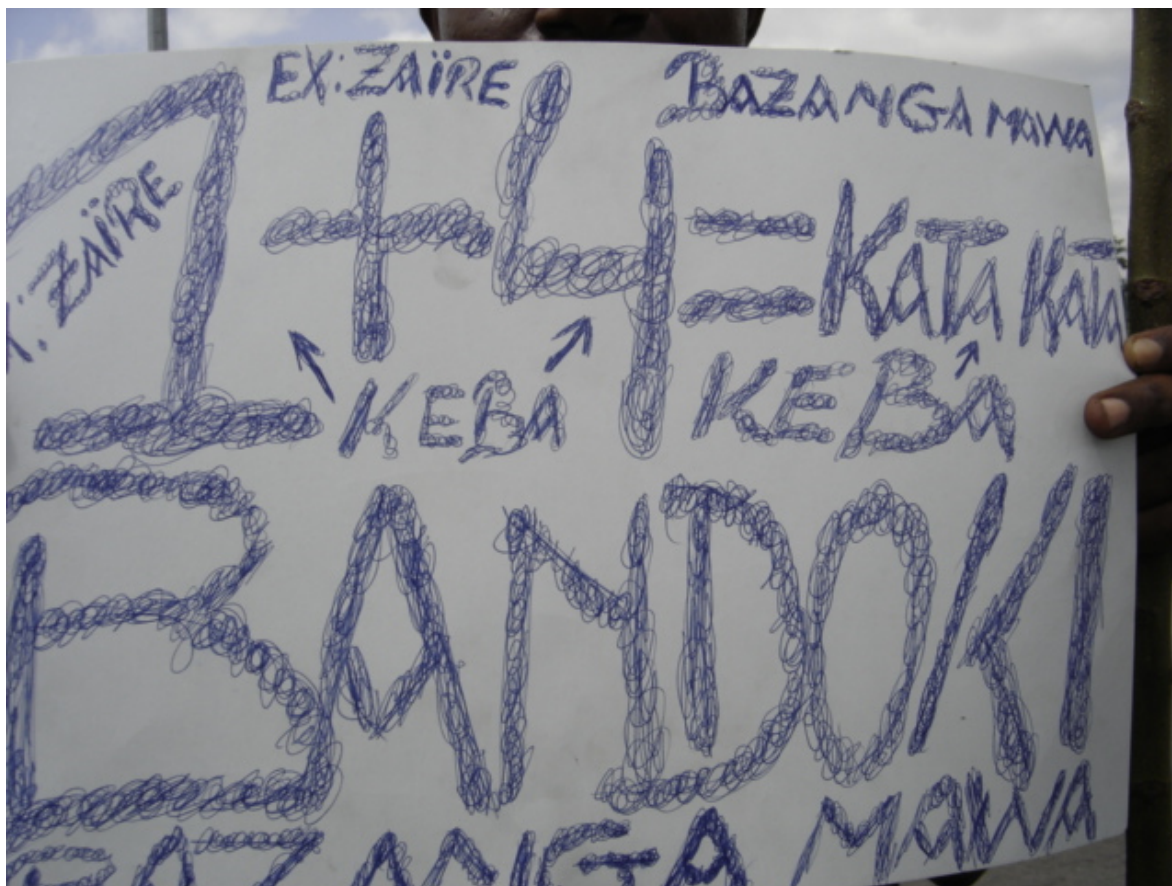 EX: ZAÏRE
BAZANGA MAWA
: ZAÏRE
1 + 4 = KATA KATA
KEBA KEBA
BANDOKI
BAZANGA MAWA